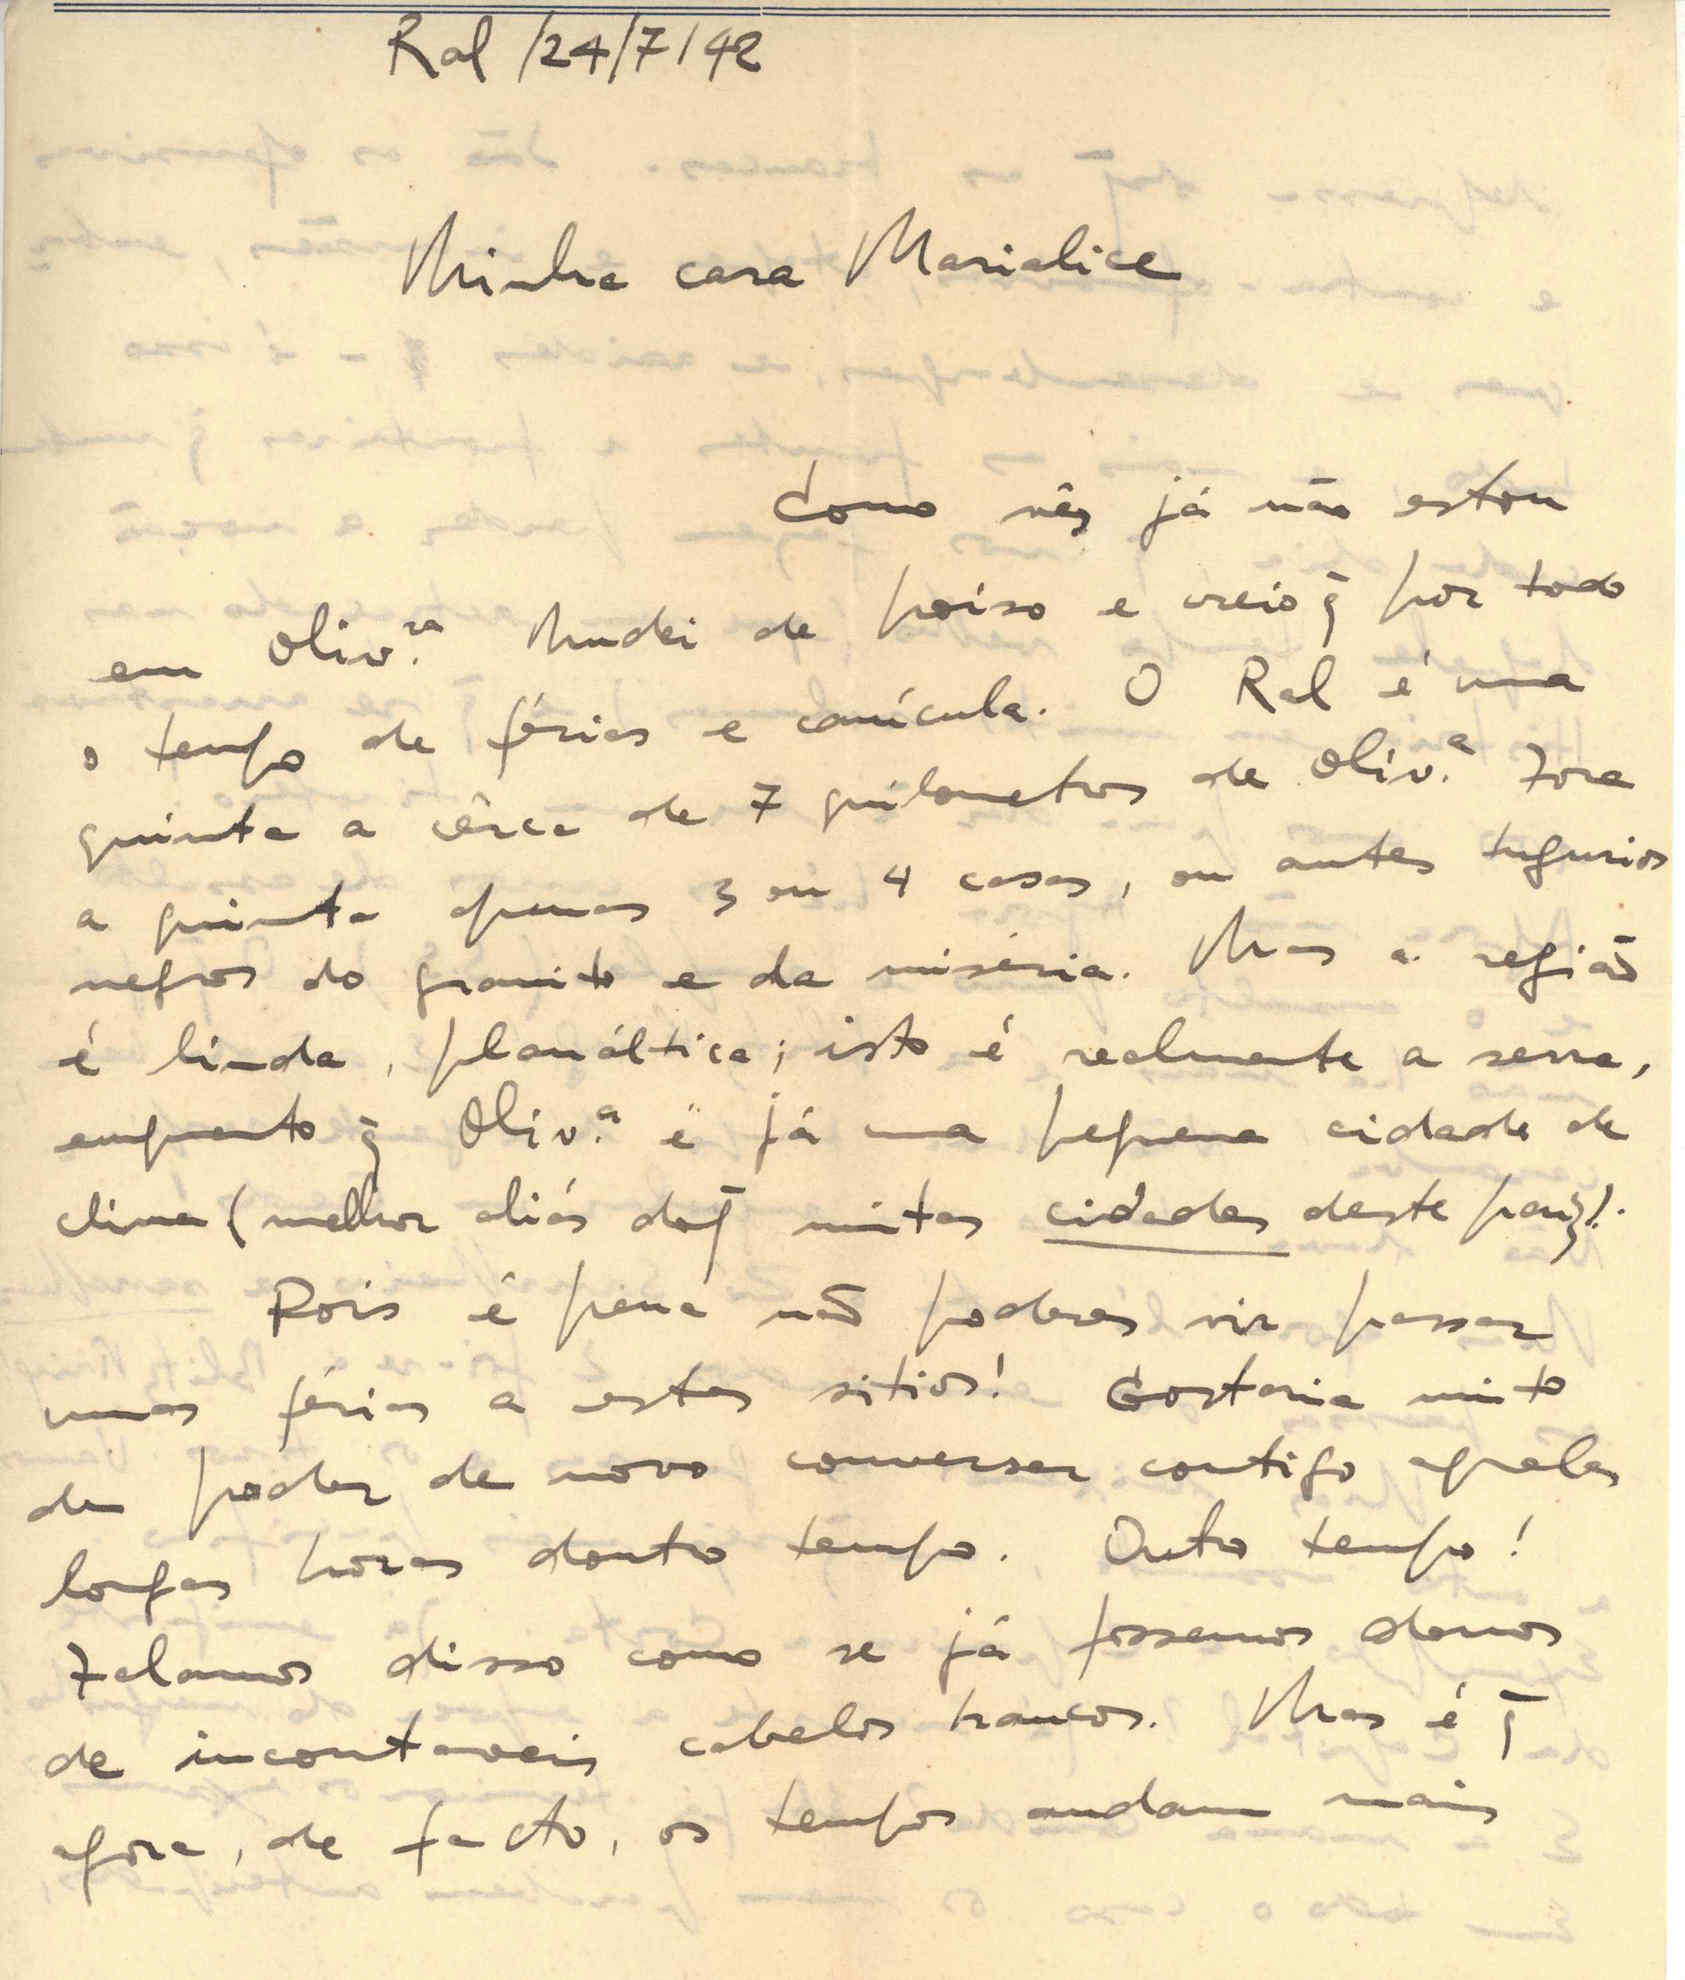 Ral /24/7/42
Minha cara Marialice
Como vês já não estou
em Oliv.ra Mudei de poiso e creio q̃ por todo
o tempo de férias e canícula. O Ral é uma
quinta a cêrca de 7 quilometros de Oliv.a Fora
a quinta apenas 3 ou 4 casas, ou antes tugurios
negros do granito e da miséria. Mas a região
é linda, planáltica; isto é realmente a serra,
emquanto q̃ Oliv.a é já uma pequena cidade de
clima (melhor aliás do q̃ muitas cidades deste paiz).
Pois é pena não poderes vir passar
umas férias a estes sitios! Gostaria muito
de poder de novo conversar contigo aquelas
longas horas doutro tempo. Outro tempo!
Falamos disso como se já fossemos donos
de incontaveis cabelos brancos. Mas é q̃
agora, de facto, os tempos andam mais